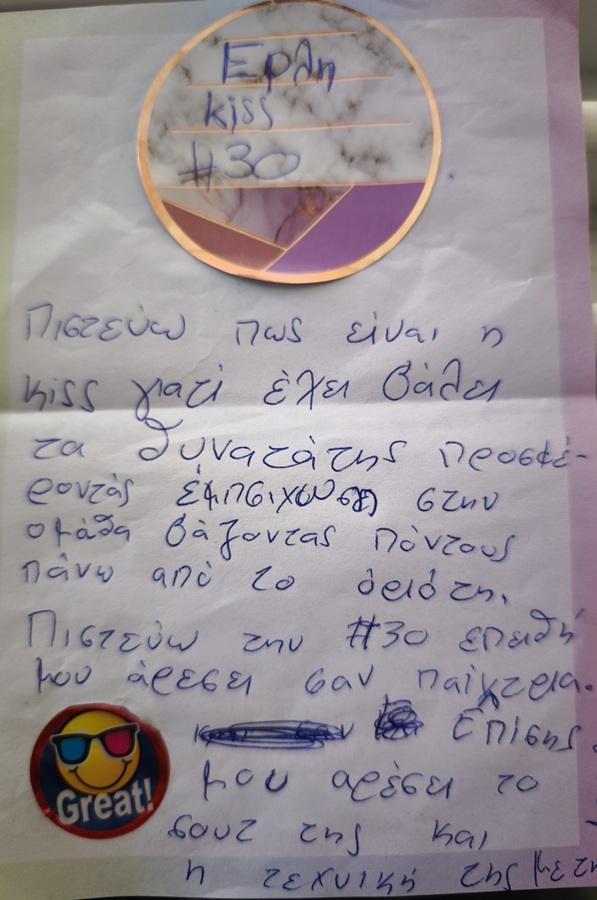 Ερλη
kiss
#30
Πιστεύω πως είναι η
kiss γιατί έχει βάλει
τα δυνατάτης προσφέ-
ροντάς έμπσιχωση στην
ομάδα βάζοντας πόντους
πάνω από το όριό της.
Πιστεύω την #30 επειδή
μου άρεσει σαν παίχτρια.
Επίσης
μου αρέσει το
Great!
σουτ της και
η τεχνική της με τη